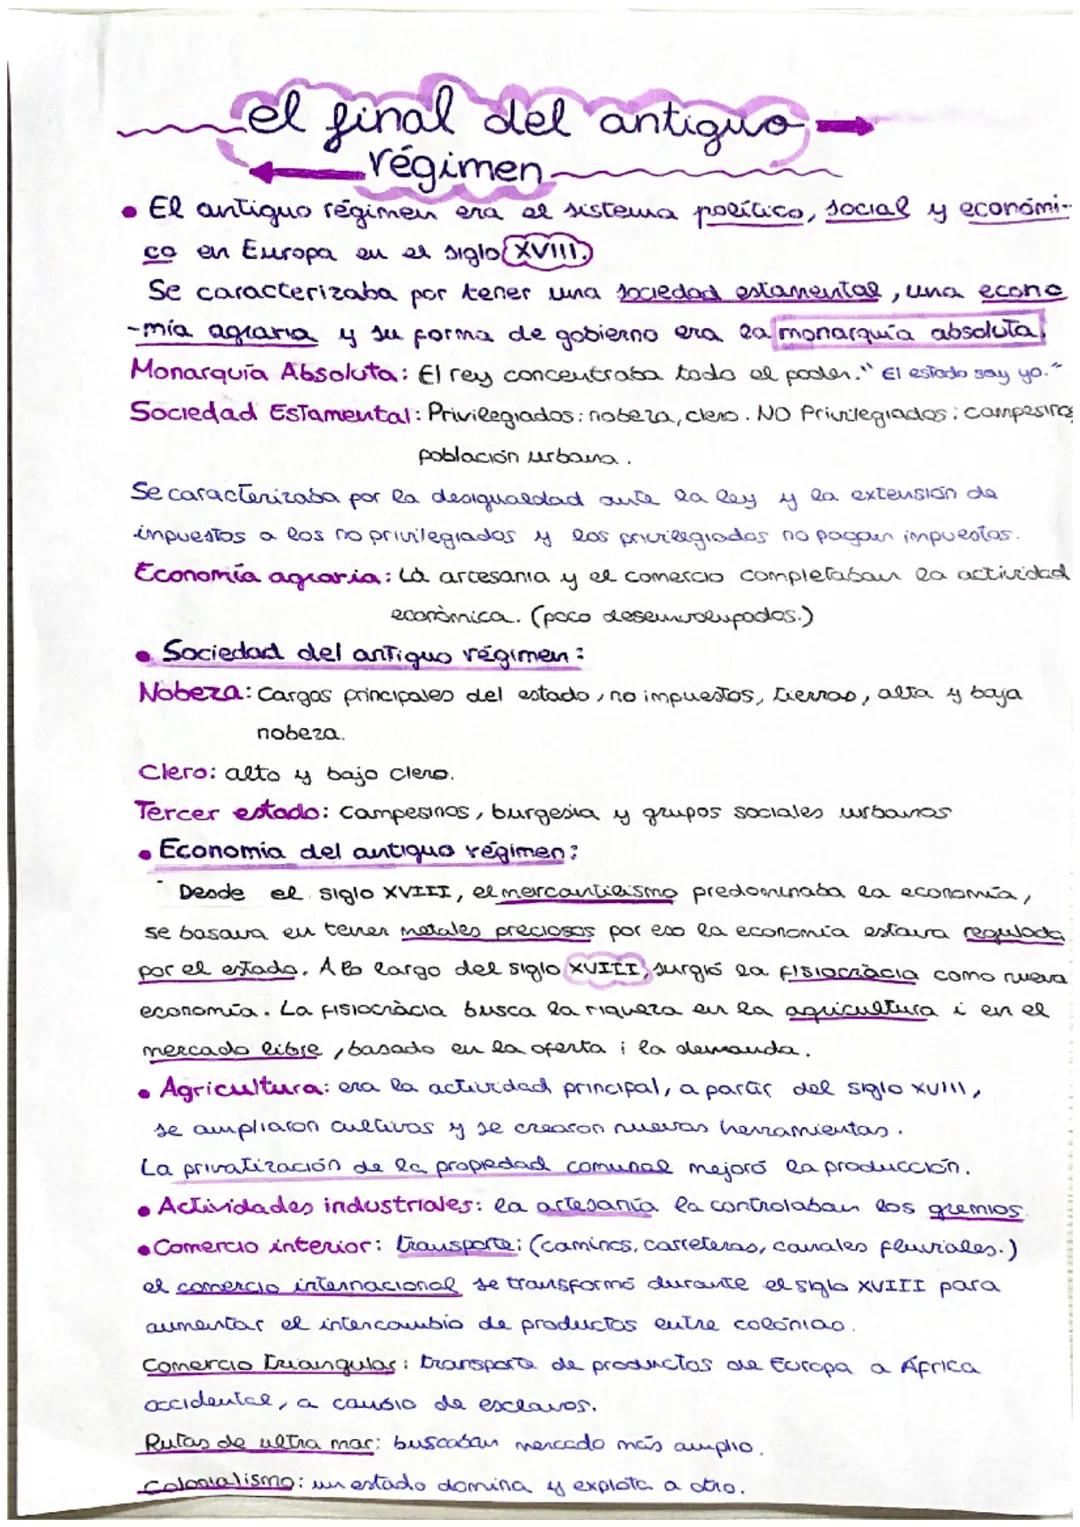 el final del antiguo
régimen
• El antiguo régimen era el sistema político, social y económi-
co en Europa en el siglo XVIII.
Se caracterizaba por tener una sociedad estamental, una econo
-mía agraria y su forma de gobierno era la monarquía absoluta.
Monarquía Absoluta: El rey concentraba todo el poder. "El estado soy yo."
Sociedad Estamental: Privilegiados: nobeza, clero. NO Privilegiados: campesinos
población urbana.
Se caracterizaba por la desigualdad ante la ley y la extensión de
impuestos a los no privilegiados y los privilegiados no pagan impuestos.
Economía agraria: La artesania y el comercio completaban la actividad
econòmica. (poco desenvolupados.)
• Sociedad del antiguo régimen:
Nobeza: Cargos principales del estado, no impuestos, tierras, alta y baja
nobeza.
Clero: alto y bajo clero.
Tercer estado: Campesinos, burgesia y grupos sociales urbanos
• Economia del antiguo régimen:
Desde el siglo XVIII, el mercantilismo predominaba la economía,
se basava en tener metales preciosos por eso la economía estava regulada
por el estado. A lo largo del siglo XVIII, surgió la fisiocràcia como nueva
economía. La fisiocràcia busca la riqueza en la agricultura i en el
mercado libre, basado en la oferta i la demanda.
• Agricultura: era la actividad principal, a partir del siglo XVIII,
se ampliaron cultivos y se crearon nuevas herramientas.
La privatización de la propiedad comunal mejoró la producción.
• Actividades industriales: la artesanía la controlaban los gremios
• Comercio interior: transporte: (caminos, carreteras, canales fluviales.)
el comercio internacional se transformó durante el siglo XVIII para
aumentar el intercambio de productos entre colónias.
Comercio triangular: transporte de productos de Europa a África
occidental, a causio de esclavos.
Rutas de ultra mar: buscaban mercado más amplio.
Colonialismo: un estado domina y explota a otro.